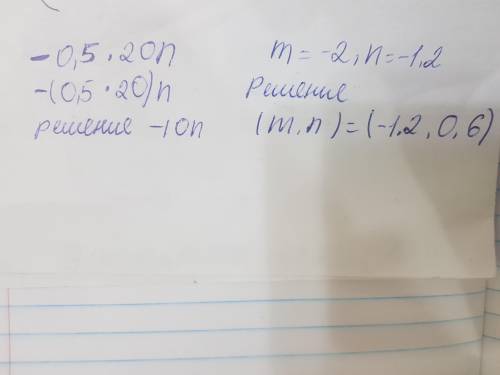 -0,5 · 20n
-(0,5 · 20)n
решение -10n
m = -2, n = -1,2
Решение
(m, n) = (-1,2, 0,6)